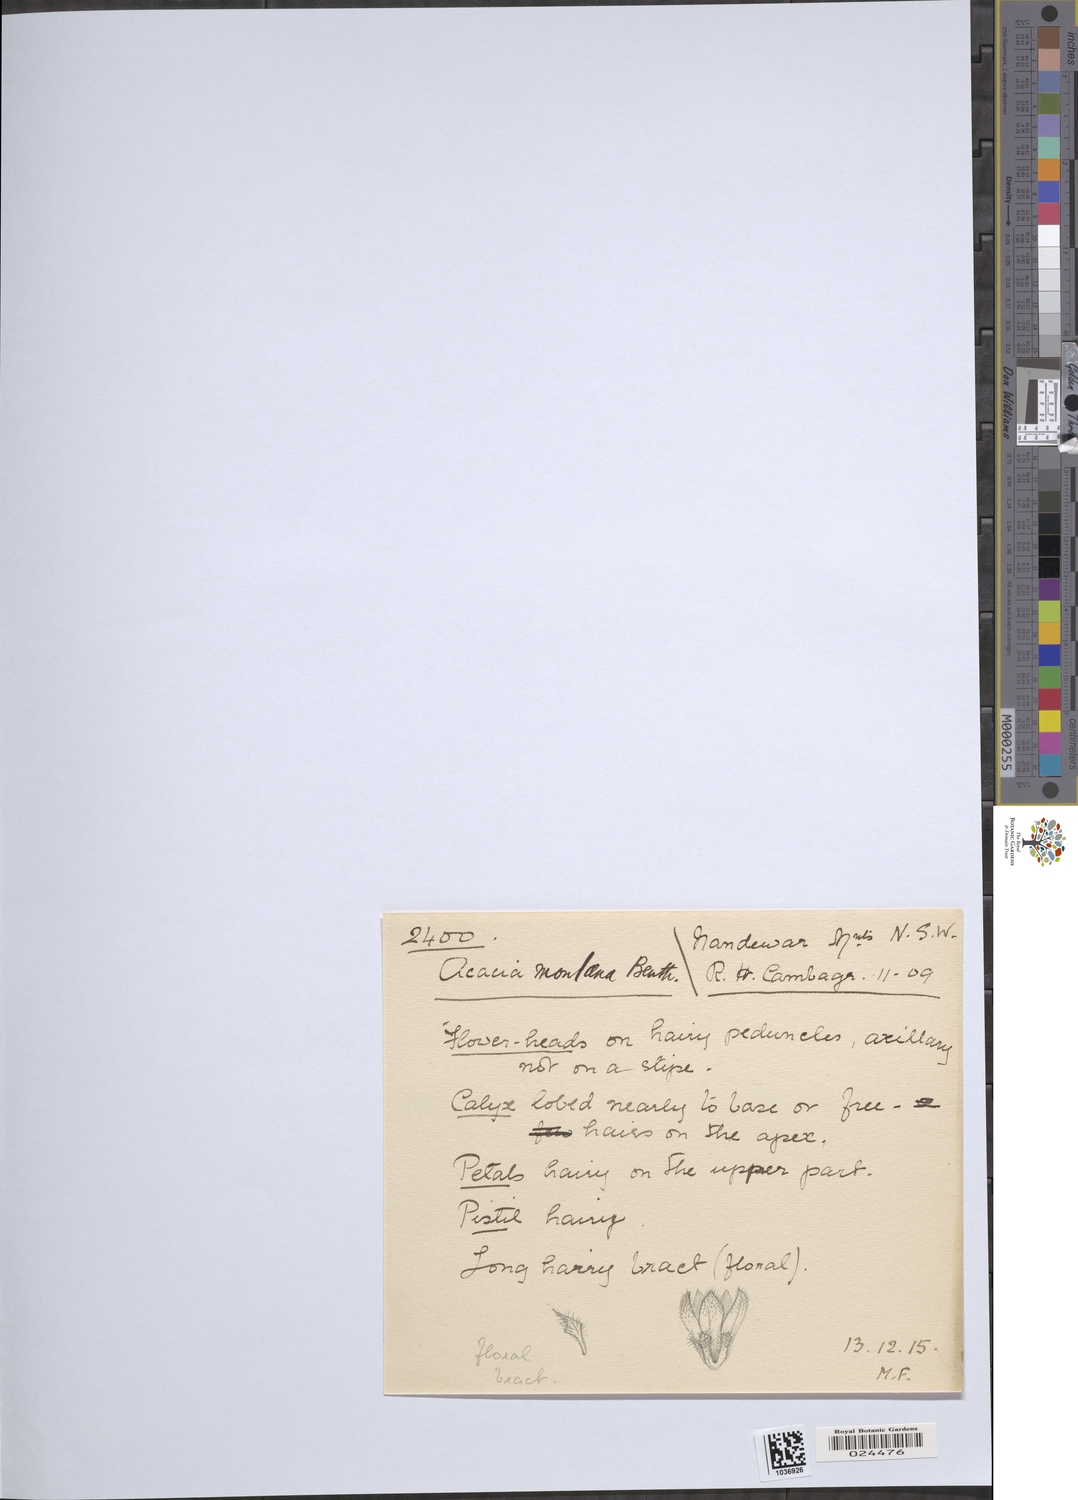 2400.
Acacia montana Benth.
Nandewar Mnts N.S.W.
R. H. Cambage. 11-09
Flower-heads on hairy peduncles, axillary
not on a stipe.
Calyx lobed nearly to base or free - a
few hairs on the apex.
Petals hairy on the upper part.
Pistil hairy.
Long hairy bract (floral).
floral
bract.
13.12.15.
M.F.
1036926
Royal Botanic Gardens
024476
inches
centimeters
Density
Don Williams
Golden Thread
M000255
The Royal
BOTANIC GARDENS
& Domain Trust